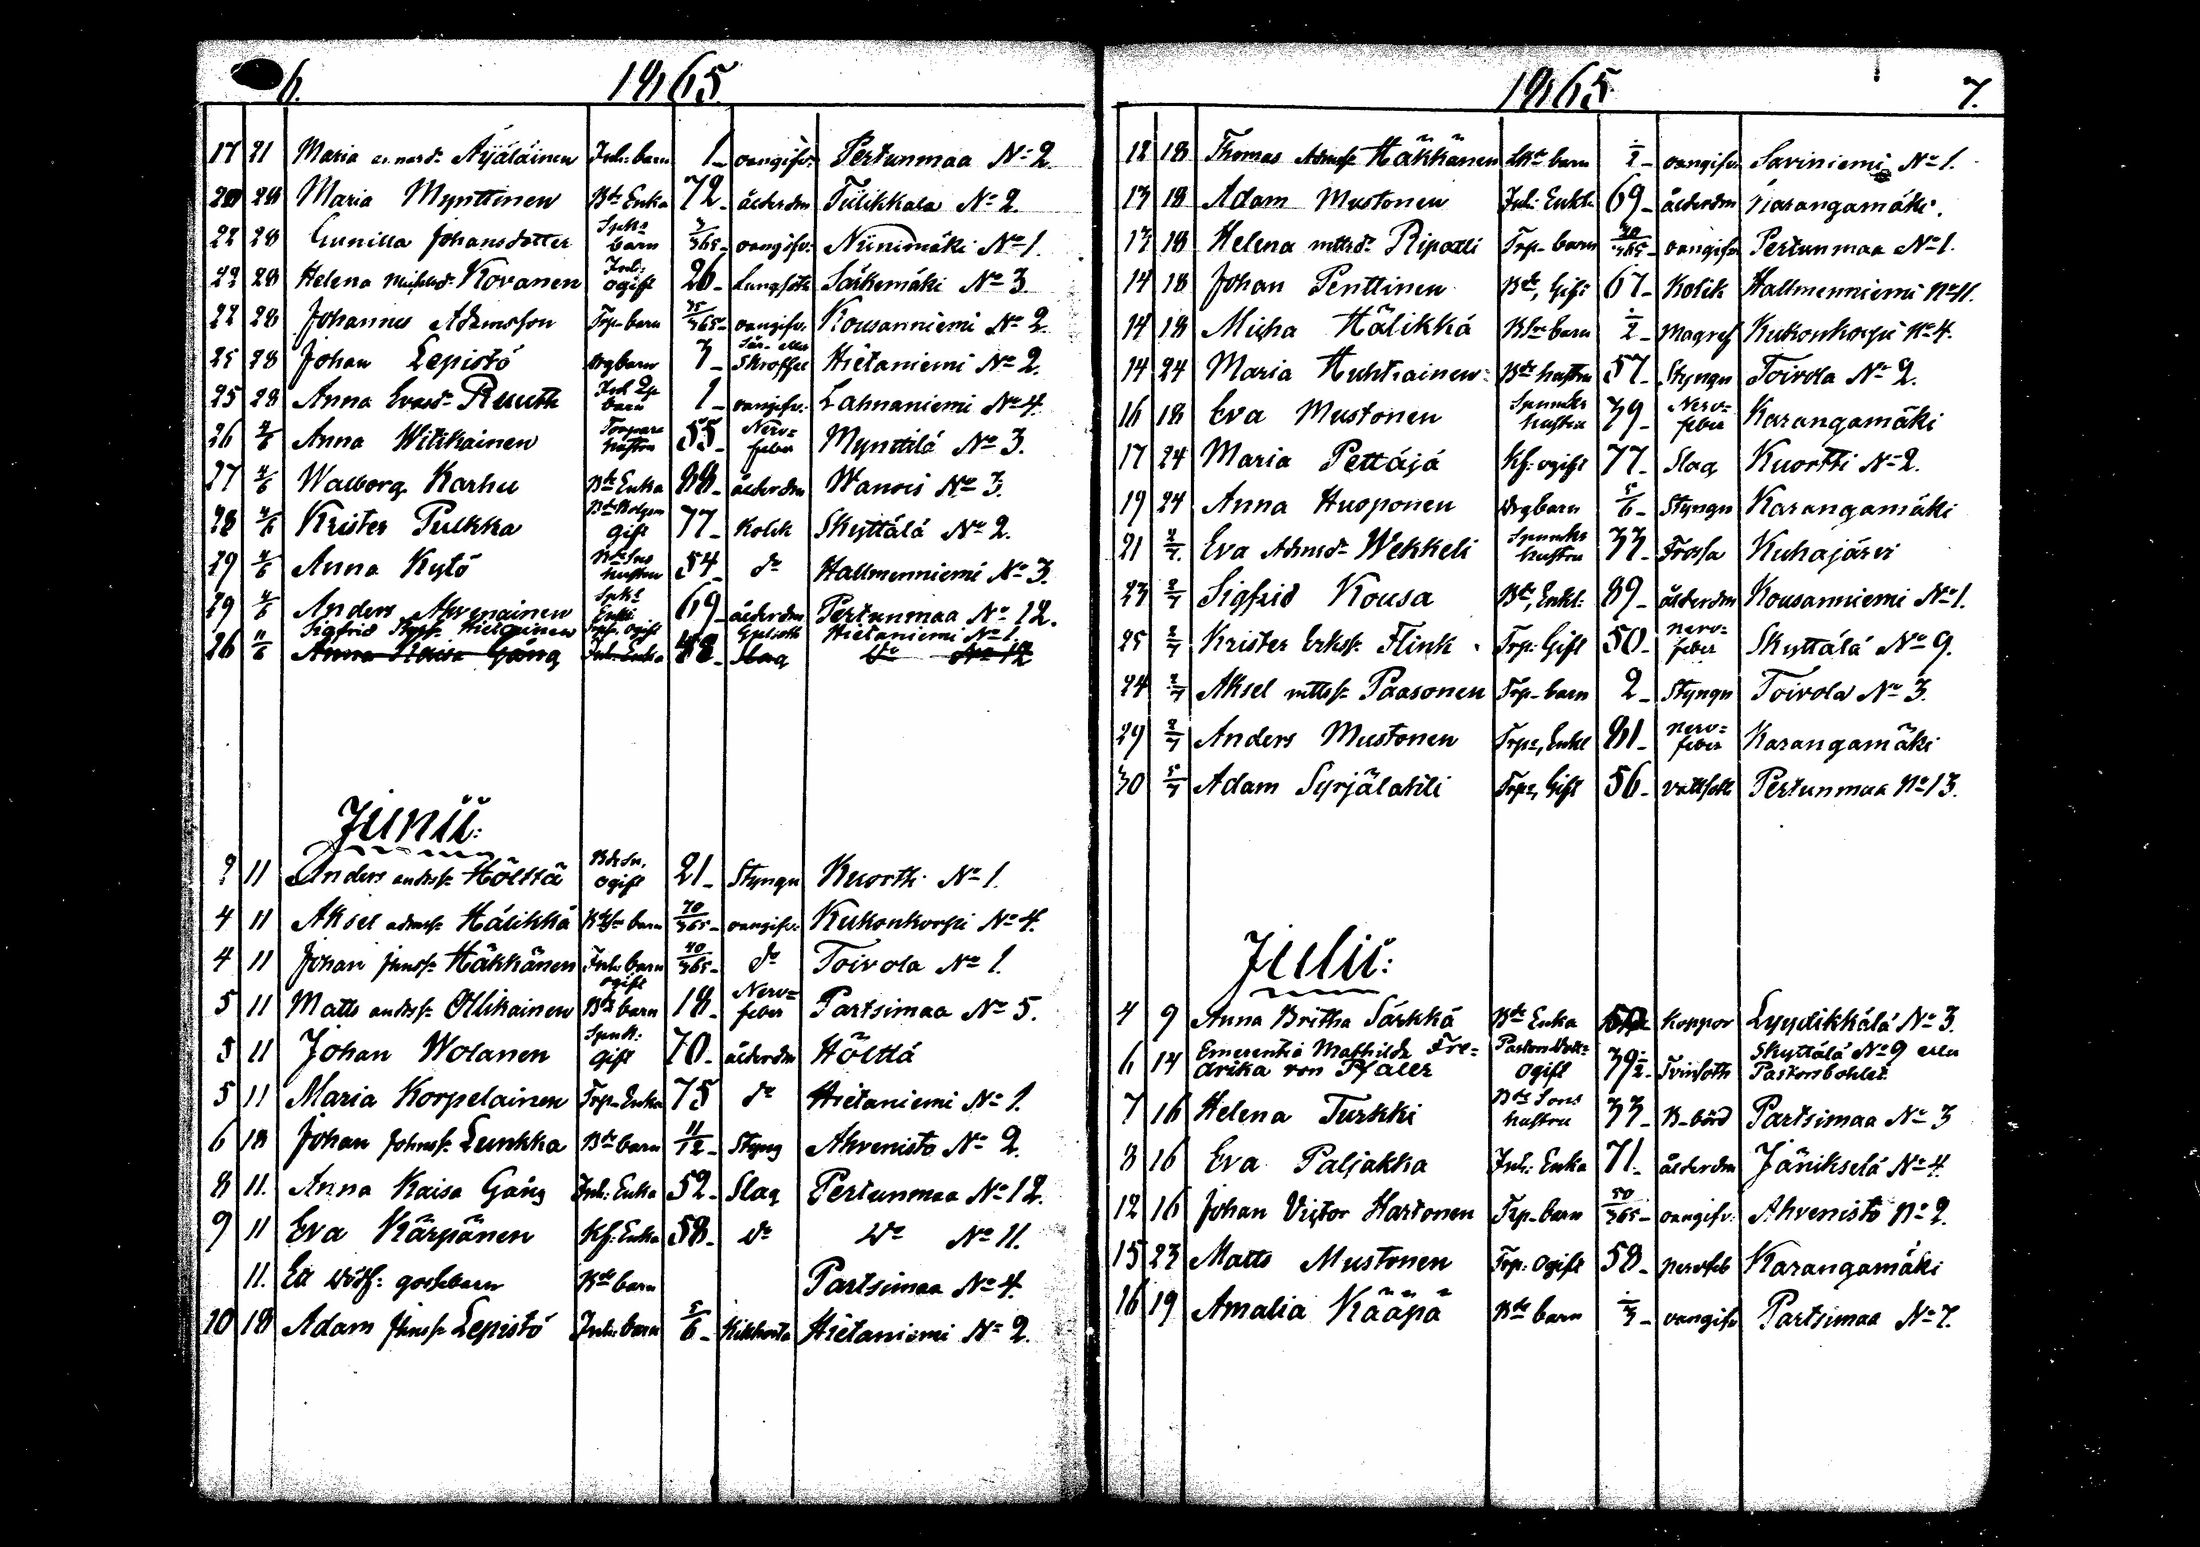 6. 1865.
17 21 Maria Äijäläinen Inh: barn 1_ oangifv: Pertunmaa No 2.
20 28 Maria Mynttinen Bde Enka 72_ ålderdm Tiilikkala No 2.
22 28 Gunilla Johansdotter Spks barn 3/365_ oangifv: Niinimäki No 1.
22 28 Helena Kovanen Inh: ogift 26_ Lungsot Särkemäki No 3.
22 28 Johannes Adamsson Trp_ barn 25/365_ oangifv: Kousanniemi No 2.
25 28 Johan Lepistö Drgbarn 3_ Skroffler Hietaniemi No 2.
25 28 Anna Evasdr Ruuth barn 1_ oangifv: Lahnaniemi No 4.
26 4/6 Anna Witikainen Torpare hustru 55_ Nerv= feber Mynttilä No 3.
27 4/6 Walborg Karhu Bde Enka 88_ ålderdm Wanois No 3.
28 4/6 Krister Pulkka gift 77_ Kolik Skyttälä No 2.
29 4/6 Anna Kytö Bde Sons hustru 54_ do Hallmenniemi No 3.
29 4/6 Anders Ahvenainen Spks Enkl: 69_ ålderdm Pertunmaa No 12.
Sigfrid Hietainen ogift Hietaniemi No 1.
26 11/6 Anna Kaisa Gång Inh: Enka Slag Do No 12
Junii:
2 11 Anders andrss: Hölttä Bde Sn, ogift 21_ Styngn Kuortti No 1.
4 11 Aksel adamss: Hälikkä barn 70/365_ oangifv: Kukonkorpi No 4.
4 11 Johan Jhnss: Häkkänen Inh: barn 40/365_ do Toivola No 1.
5 11 Matts andrss: Ollikainen ogift Bde barn 18_ Nerv= feber Partsimaa No 5.
5 11 Johan Wolanen Spnk: Gift 70_ ålderdm Hölttä
5 11 Maria Korpelainen Trp_ Enka 75 do Hietaniemi No 1.
6 18 Johan Johnss: Lunkka Bde barn 11/12_ Styng Ahvenisto No 2.
8 11. Anna Kaisa Gång Inh: Enka 52_ Slag Pertunmaa No 12.
9 11 Eva Kärpänen Kf: Enka 58_ Do Do No 11.
11. Ett dödf: gossebarn Bde barn Partsimaa No 4.
10 18 Adam Jhnss: Lepistö Inh: barn 5/6_ Kikhosta Hietaniemi No 2.
1865. 7.
12 18 Thomas Adamss: Häkkänen barn 1/2_ oangifv Saviniemi No 1.
13 18 Adam Mustonen Inh: Enkl: 69_ ålderdm Karangamäki.
13 18 Helena mttsdr Ripatti Trp_ barn 30/365_ oangifv Pertunmaa No 1.
14 18 Johan Penttinen Bde, Gift 67_ Kolik Hallmenniemi No 11.
14 18 Micha Hälikkä barn 1/2_ Magref Kukonkorpi No 4.
14 24 Maria Huhtiainen Bde hustru 57_ Styngn Toivola No 2.
16 18 Eva Mustonen Spnmks hustru 39_ Nerv= feber Karangamäki
17 24 Maria Pettäjä Kf: ogift 77_ Slag Kuortti No 2.
19 24 Anna Husponen Drgbarn 5/6_ Styngn Karangamäki
21 2/7 Eva Admsdr Wekkeli Spnmks hustru 33_ Frossa Kuhajärvi
23 2/7 Sigfrid Kousa Bde, Enkl: 89_ ålderdm Kousanniemi No 1.
25 2/7 Krister Erkss: Flink Trp: Gift 50_ nerv= feber Skyttälä No 9.
24 2/7 Aksel mttss: Paasonen Trp_ barn 2_ Styngn Toivola No 3.
29 2/7 Anders Mustonen Trp, Enkl 81_ nerv= feber Karangamäki
30 5/7 Adam Syrjälahti Trp, Gift 56_ Pertunmaa No 13.
Julii:
4 9 Anna Britha Särkkä Bde Enka Koppor Lyydikkälä No 3.
6 14 Emerentia Mathilda Fre= drika von Pfaler ogift 39 1/2_ Tvinsoth Skyttälä No 9 eller Pastorsbohlet
7 16 Helena Turkki Bde Sons hustru 33_ B_ börd Partsimaa No 3
8 16 Eva Paljakka Inh: Enka 71_ ålderdm Jänikselä No 4.
12 16 Johan Victor Hartonen Trp_ barn 50/365_ oangifv: Ahvenisto No 2.
15 23 Matts Mustonen Trp: Ogift 58_ nervfeb Karangamäki
16 19 Amalia Kääpä Bde barn 1/3_ oangifv Partsimaa No 7.